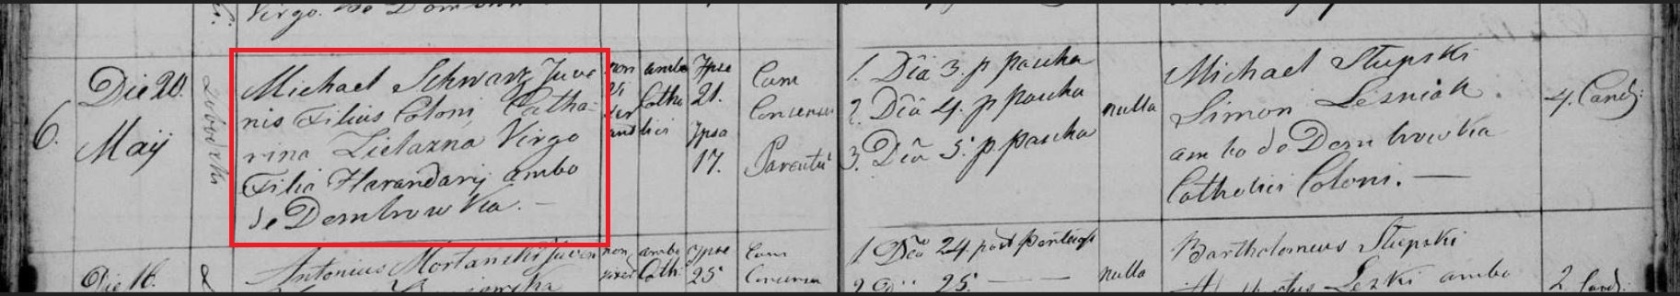 Virgo. de Dombrow
6.
Die 20.
Maÿ
Michael Schwarz Juve
nis Filius Coloni Catha-
rina Zielazna Virgo
Filia Harandarÿ ambo
de Dombrowka. -
non
vi
ambo
Catho
lici
Ipse
21.
Ipsa
17.
Cum
Concensu
Parentū
1. Dīa 3. p pascha
2. Dīa 4. p pascha
3. Dīa 5. p pascha
nulla
Michael Stupski
Simon Lesniak.
ambo de Dombrowka
Catholici Coloni. —
4. Cand:
Die 16.
Antonius Juven
non
ambo
Cath.
Ipse
25
Cum
Concensu
1 Dīa 24 post Pentecos
2 25. —
nulla
Bartholomeus Stupski
Leski ambo
2. Cand: